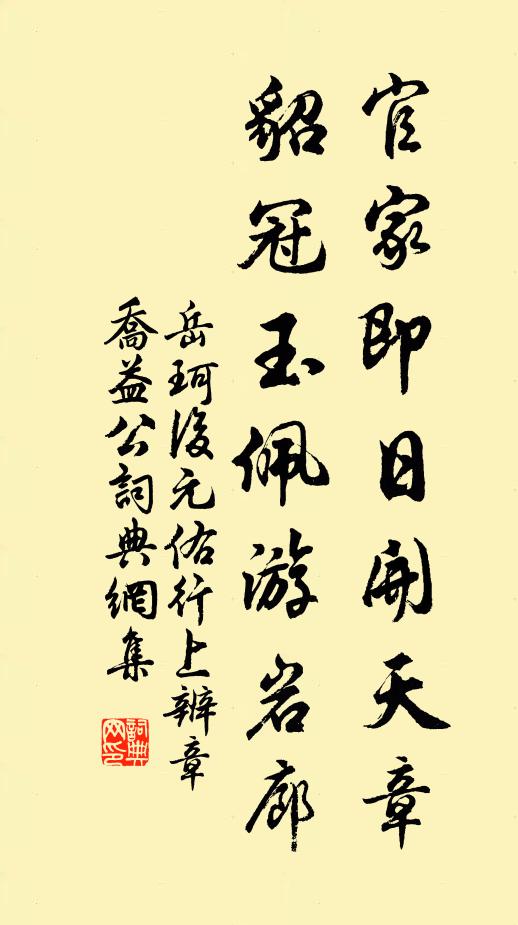 官家即日開天章
貂冠玉佩游岩廊
岳珂後元佑行上辨章
喬益公詞典網集
詞典網印